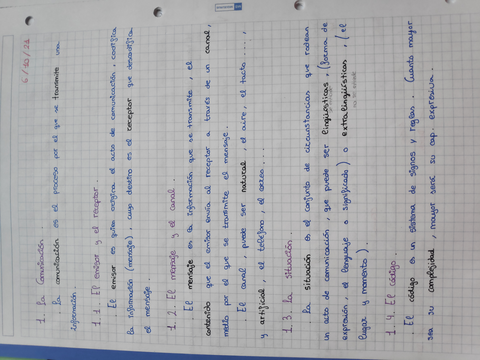 6/10/21
1. La Comunicación.
· La comunicación es el proceso por el que se transmite una
información.
1.1. El emisor y el receptor.
El emisor es quien origina el acto de comunicación, codifica
la información (mensaje), cuyo destino es el receptor que descodifica
el mensaje.
1.2. El mensaje y el canal.
· El mensaje es la información que se transmite, el
contenido que el emisor envía al receptor a través de un canal,
medio por el que se transmite el mensaje.
El canal, puede ser natural, el aire, el tacto...,
y artificial, el teléfono, el correo...
1.3. La situación.
La situación es el conjunto de circunstancias que rodean
un acto de comunicación, que puede ser lingüísticas, (forma de
expresión, el lenguaje o significado) o extralingüísticas, (el
lugar y momento).
1.4. El código.
· El código es un sistema de signos y reglas. Cuanto mayor
sea su complejidad, mayor será su cap. expresiva.